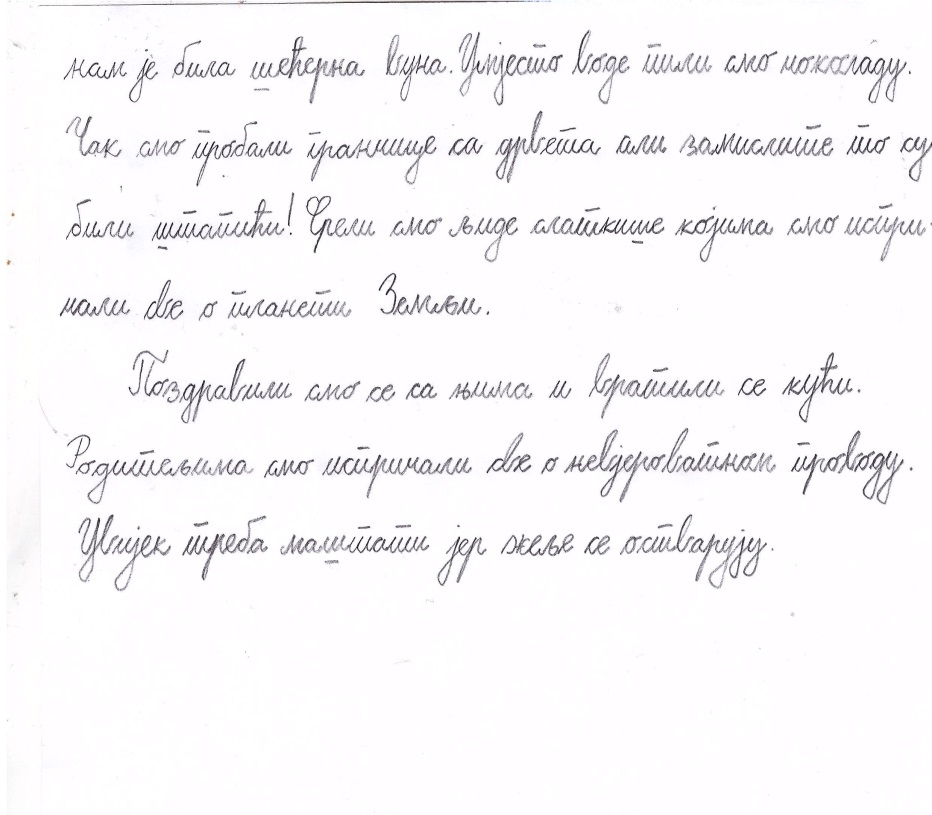 нам је била шећерна вуна. Умјесто воде пили смо чоколаду.
Чак смо пробали гранчице са дрвета али замислите то су
били штапићи! Срели смо људе слаткише којима смо испри-
чали све о планети Земљи.
Поздравили смо се са њима и вратили се кући.
Родитељима смо испричали све о невјероватном проводу.
Увијек треба маштати јер жеље се остварују.